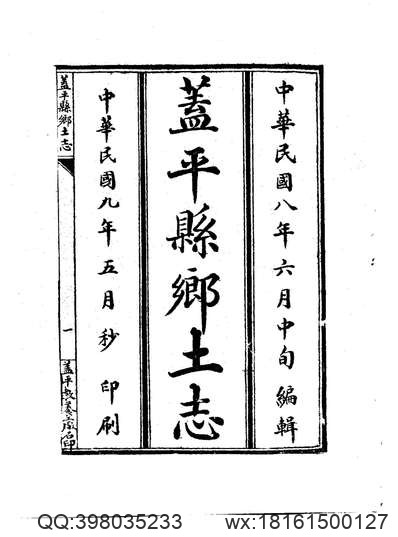 中華民國八年六月中旬編輯
蓋平縣鄉土志
中華民國九年五月秒印刷
蓋平縣鄉土志
一
蓋平教養工廠石印
QQ:398035233
wx:18161500127